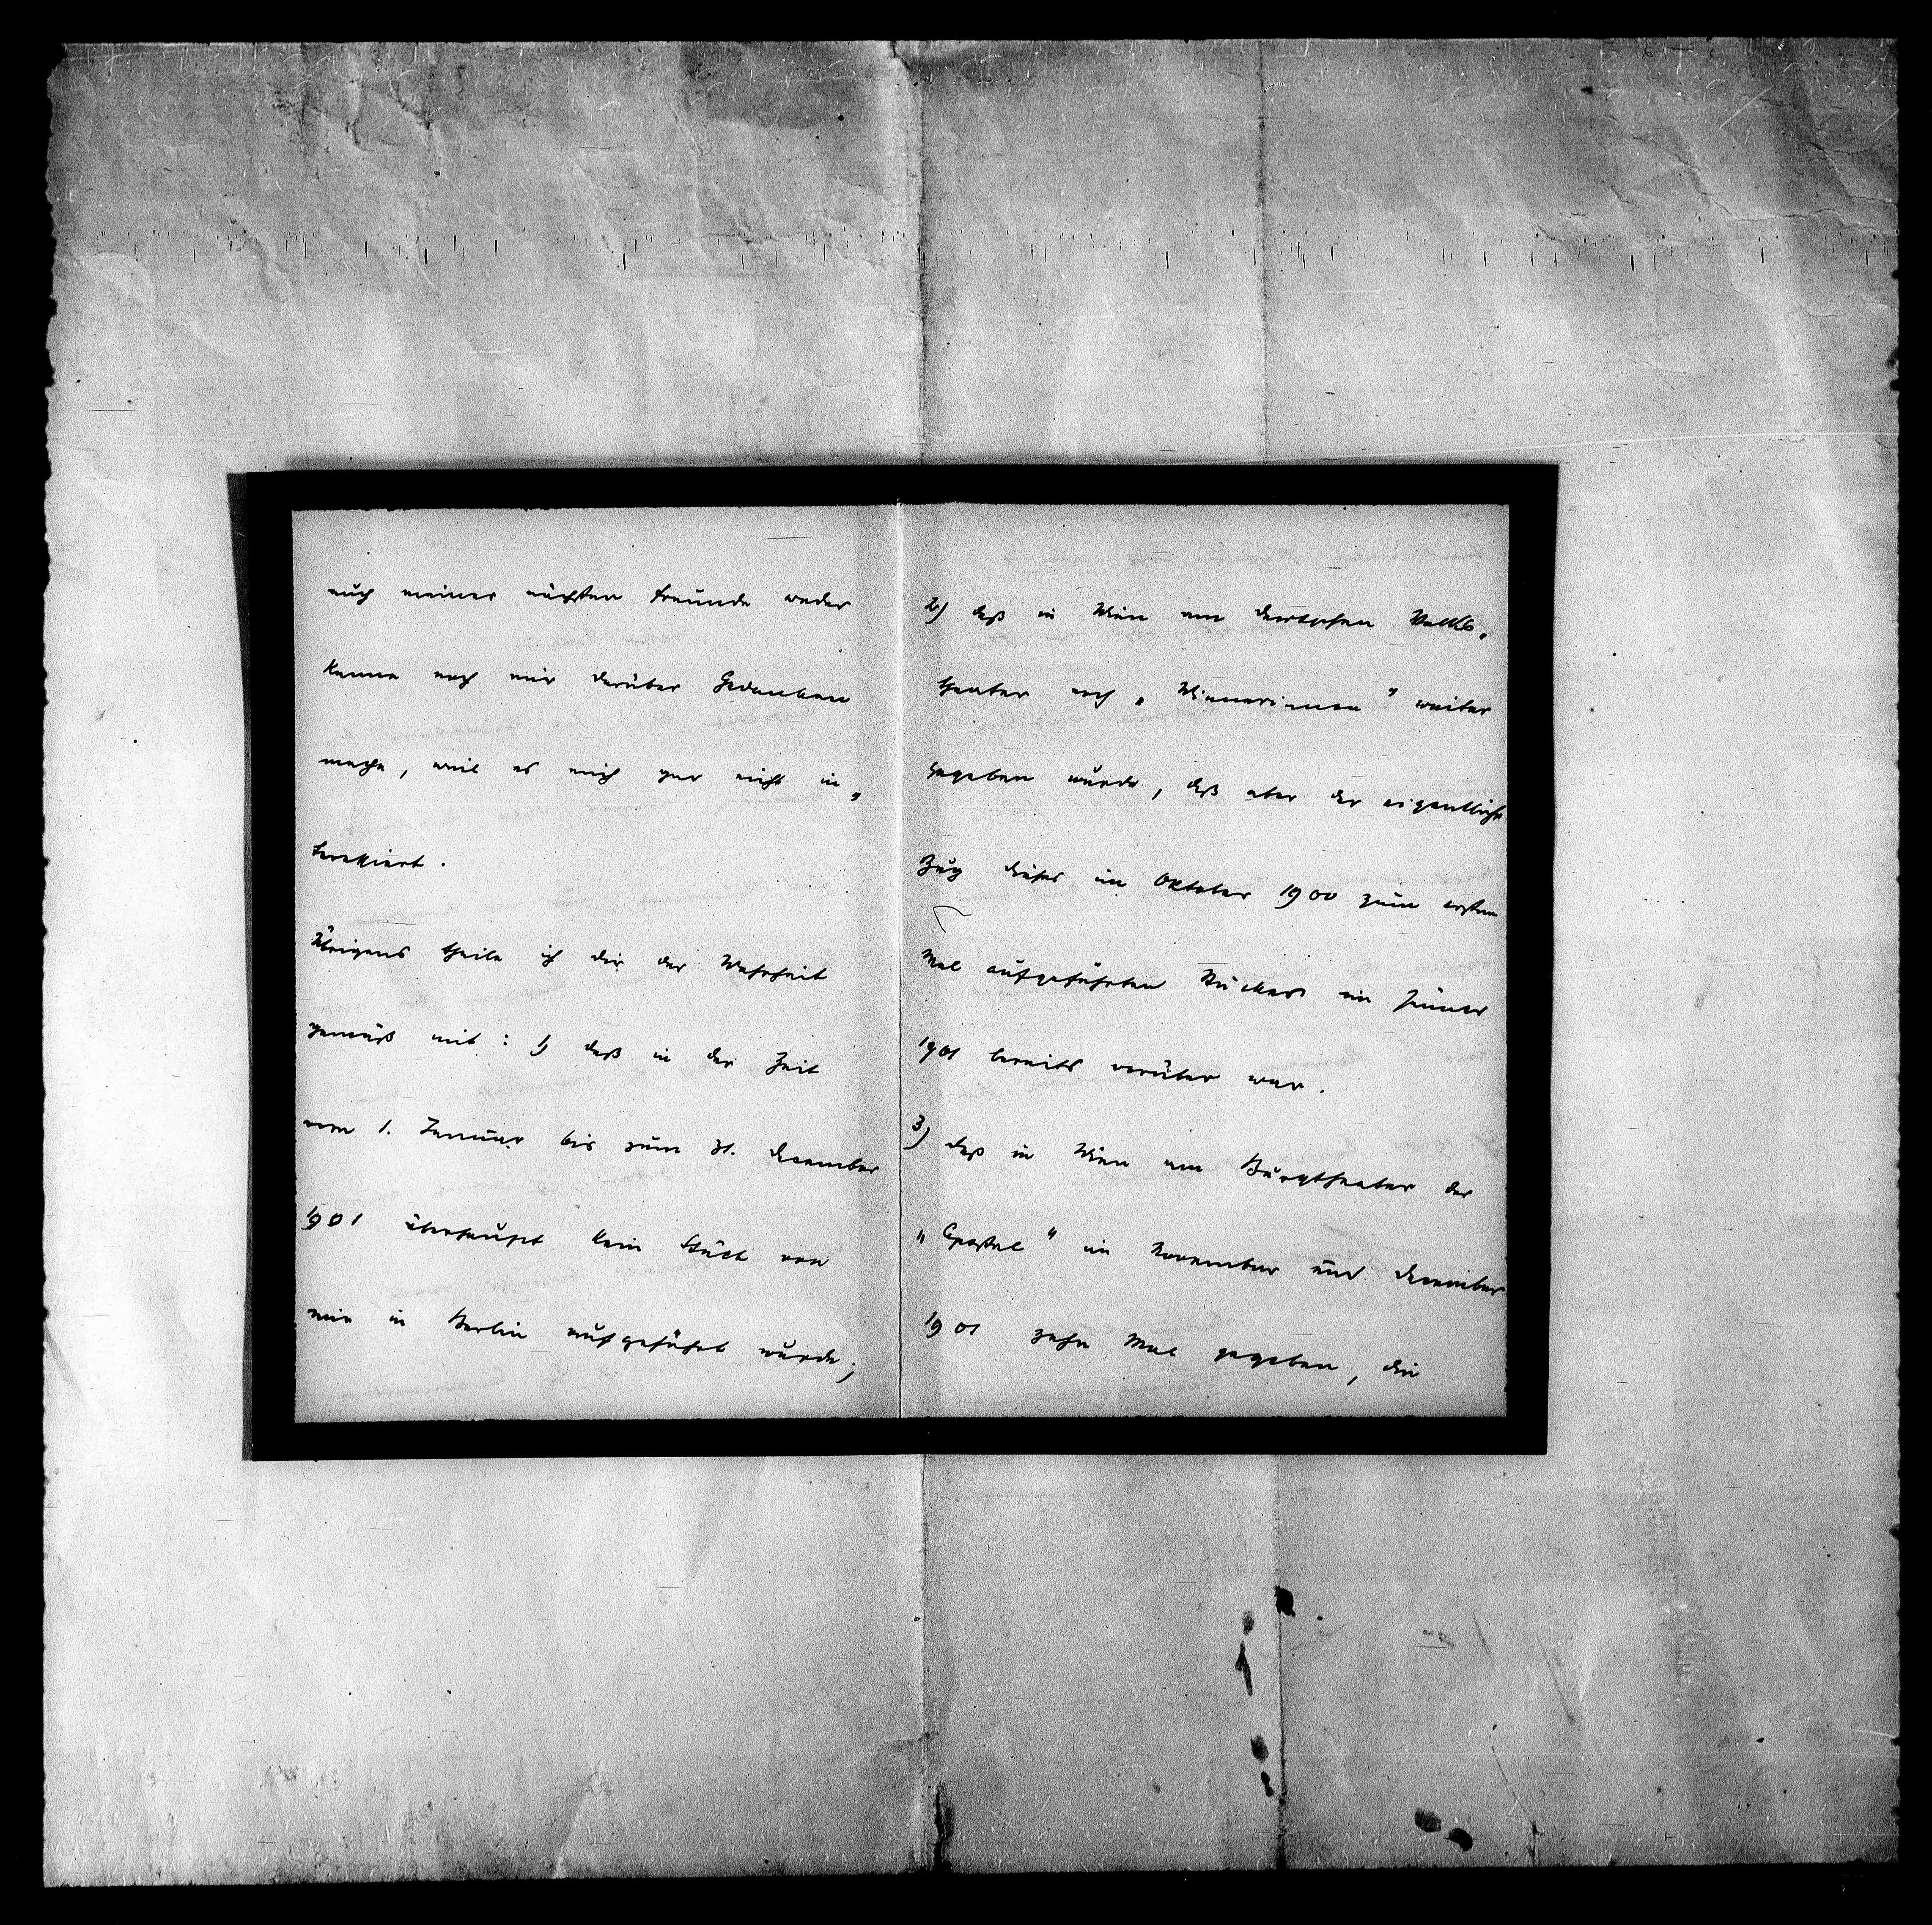 auch meiner nächsten Freunde weder
kenne noch mir darüber Gedanken
mache, weil es mich gar nicht in„
teressiert.
Übrigens theile ich dir der Wahrheit
gemäß mit: 1) daß in der Zeit
vom 1. Januar bis zum 31. December
1901 überhaupt kein Stück von
mir in Berlin aufgeführt wurde;
2) daß in Wien am deutschen Volks„
theater noch „Wienerinnen" weiter
gegeben wurde, daß aber der eigentliche
Zug dieses im Oktober 1900 zum ersten
Mal aufgeführten Stückes im Jänner
1901 bereits vorüber war.
3) daß in Wien am Burgtheater der
„Apostel" im November und December
1901 zehn Mal gegeben, die